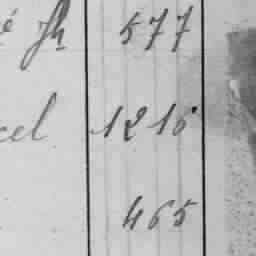 é Jh 577
cel 1215
465